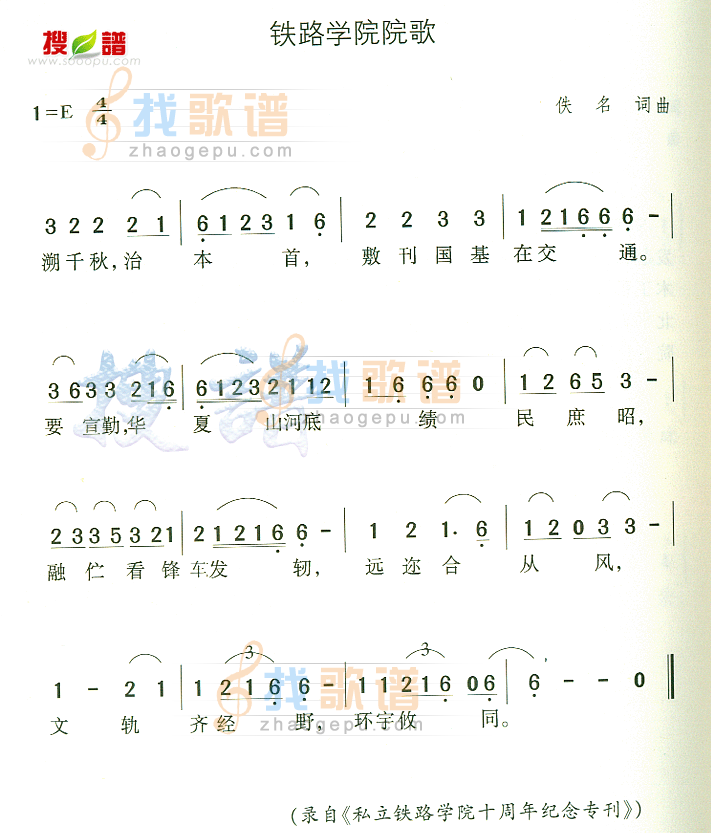 搜谱
www.sooopu.com
铁路学院院歌
1=E 4/4
找歌谱
zhaogepu.com
佚 名 词曲
3 2 2 2 1 | 6 1 2 3 1 6 | 2 2 3 3 | 1 2 1 6 6 6 - |
溯千秋,治 本 首, 敷 刊 国 基 在交 通。
3 6 3 3 2 1 6 | 6 1 2 3 2 1 1 2 | 1 6 6 6 0 | 1 2 6 5 3 - |
要 宣勤,华 夏 山河底 绩 民 庶 昭,
搜谱
找歌谱
zhaogepu.com
2 3 3 5 3 2 1 | 2 1 2 1 6 6 - | 1 2 1· 6 | 1 2 0 3 3 - |
融 伫 看 锋 车发 轫, 远 迩 合 从 风,
3 3
1 - 2 1 | 1 2 1 6 6 - | 1 1 2 1 6 0 6 | 6 - - 0 ‖
找歌谱
zhaogepu.com
文 轨 齐 经 野, 环宇攸 同。
(录自《私立铁路学院十周年纪念专刊》)